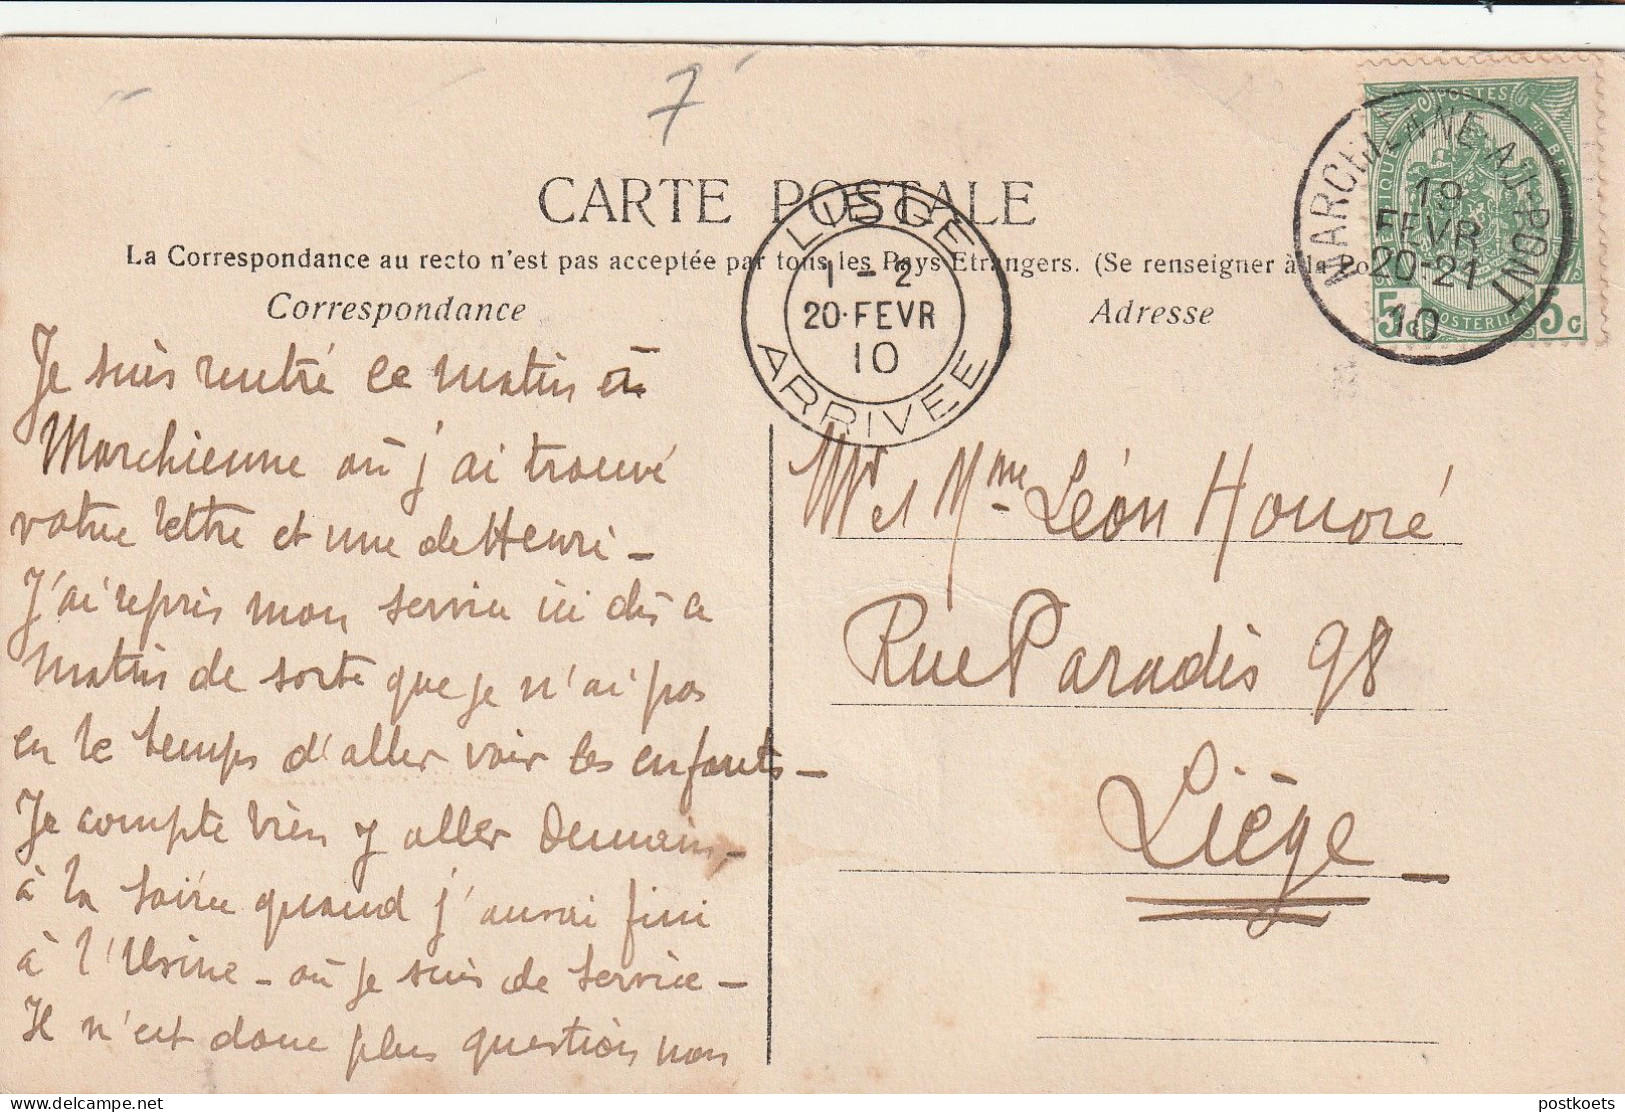 7
CARTE POSTALE
La Correspondance au recto n'est pas acceptée par tous les Pays Etrangers. (Se renseigner à la Po
Correspondance
Adresse
LIEGE
1 - 2
20 FEVR
10
ARRIVEE
MARCHIENNE-AU-PONT
19
FEVR
20-21
10
POSTES
BELGIQUE
POSTERIJEN
5c 5c
Je suis rentré ce matin à
Marchienne où j'ai trouvé
votre lettre et une de Henri –
J'ai repris mon service ici dès ce
matin de sorte que je n'ai pas
eu le temps d'aller voir les enfants –
Je compte bien y aller demain –
à la soirée quand j'aurai fini
à l'Usine – où je suis de service –
Il n'est donc plus question non
Mr et Mme Léon Honoré
Rue Paradis 98
Liège
postkoets